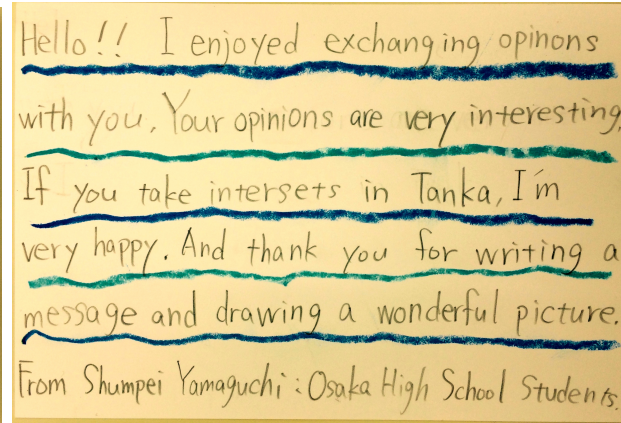 Hello!! I enjoyed exchanging opinons
with you. Your opinions are very interesting.
If you take intersets in Tanka, I'm
very happy. And thank you for writing a
message and drawing a wonderful picture.
From Shumpei Yamaguchi : Osaka High School Students.